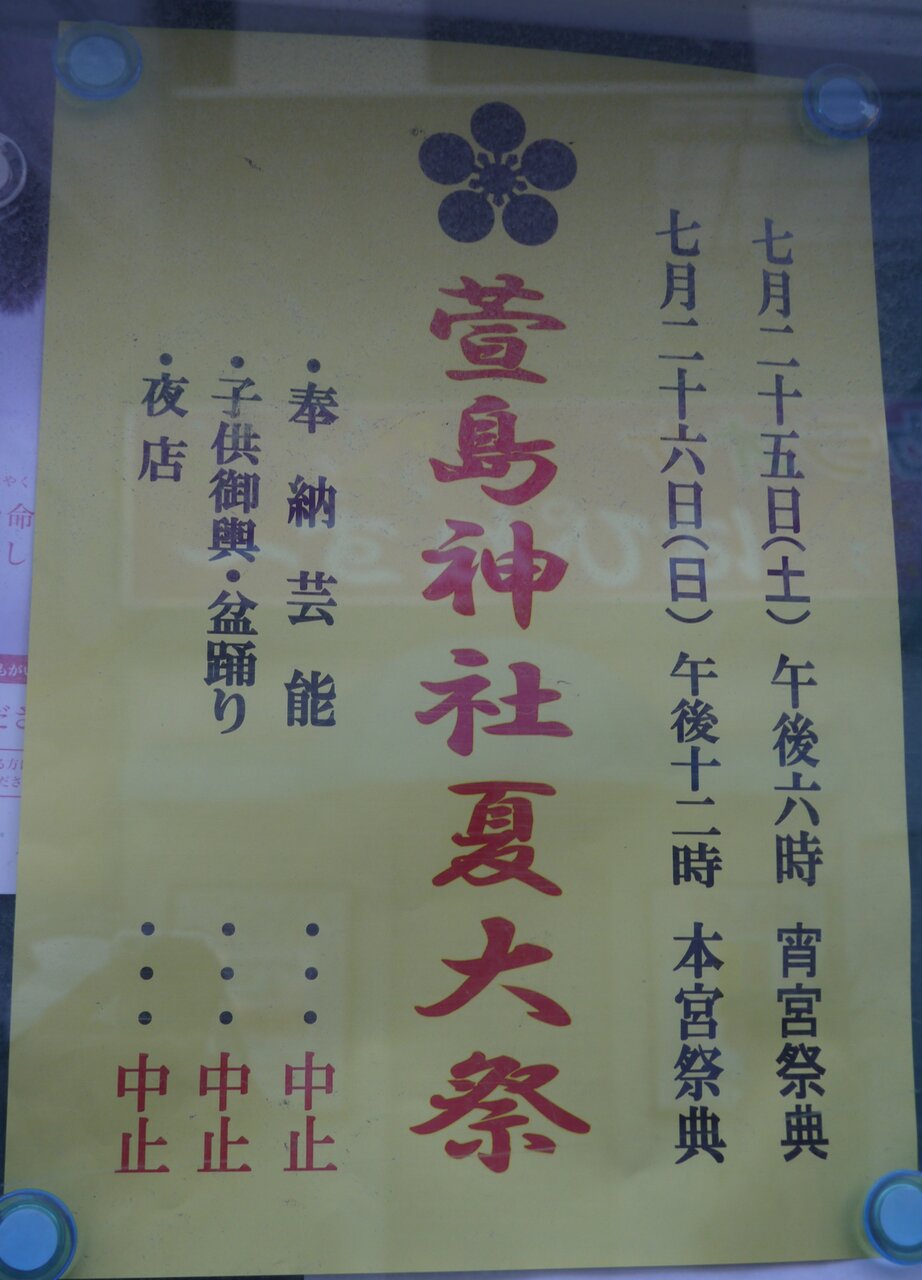 七月二十五日(土) 午後六時 宵宮祭典
七月二十六日(日) 午後十二時 本宮祭典
萱島神社夏大祭
・奉納芸能・・・中止
・子供御輿・盆踊り・・・中止
・夜店・・・中止